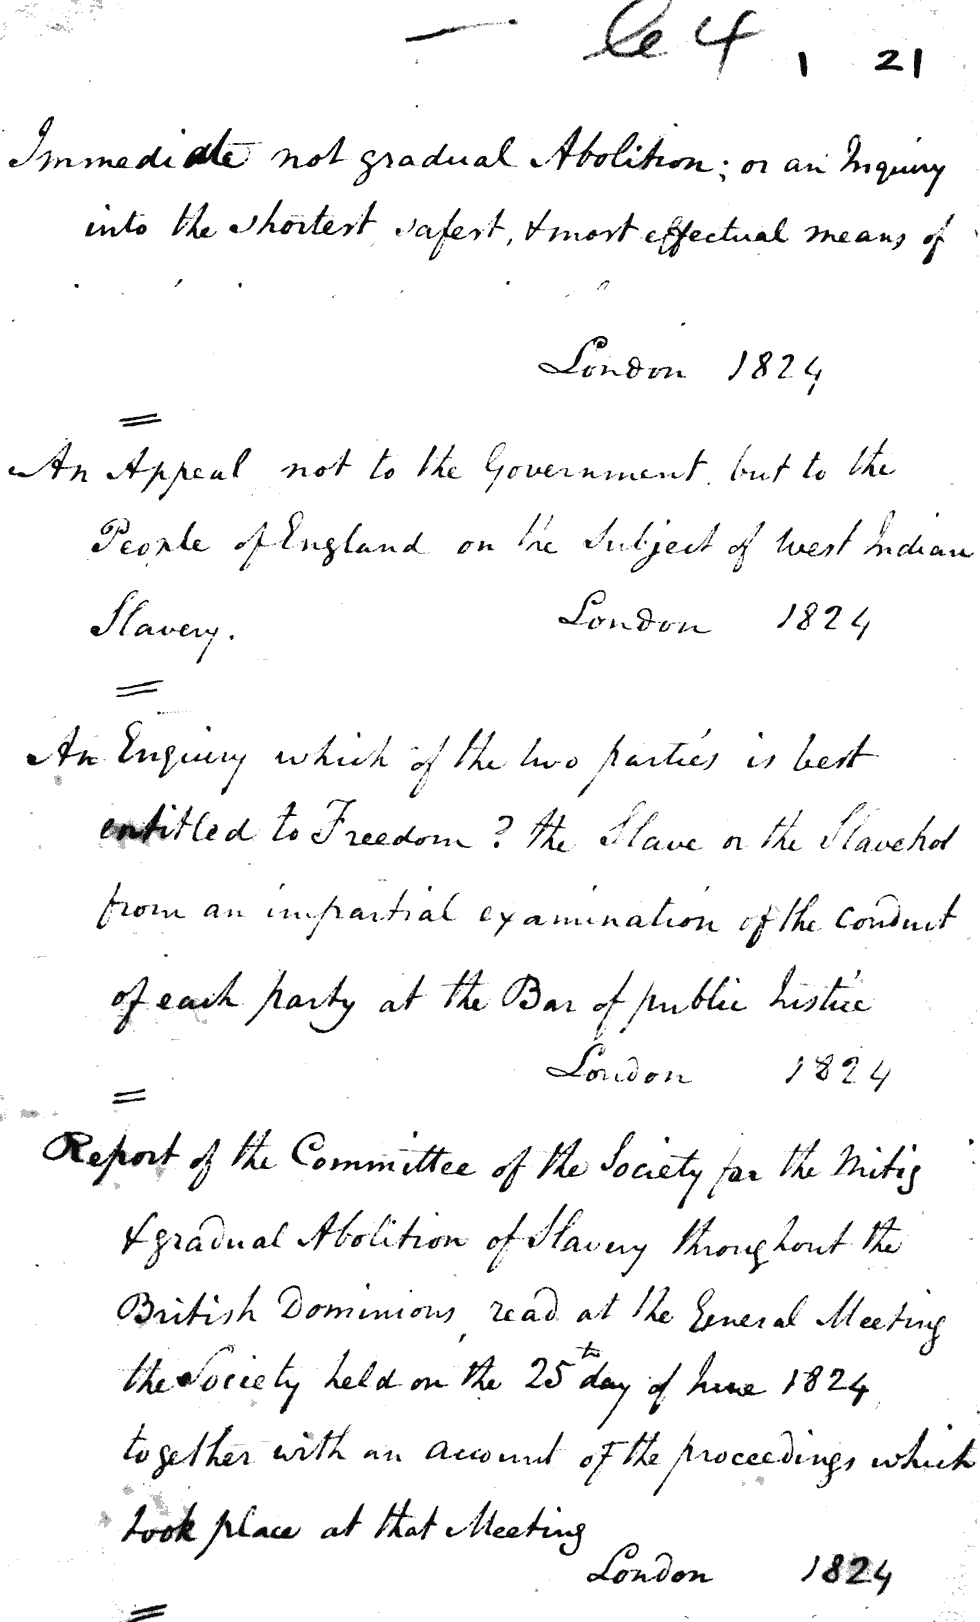 le 4 1 21
Immediate not gradual Abolition; or an Inquiry
into the shortest, safest, & most effectual means of
London 1824
An Appeal not to the Government but to the
People of England on the Subject of West Indian
Slavery. London 1824
An Enquiry which of the two parties is best
entitled to Freedom? the Slave or the Slavehol
from an impartial examination of the conduct
of each party at the Bar of public Justice
London 1824
Report of the Committee of the Society for the Mitig
& gradual Abolition of Slavery throughout the
British Dominions, read at the General Meeting
the Society held on the 25th day of June 1824
together with an account of the proceedings which
took place at that Meeting
London 1824